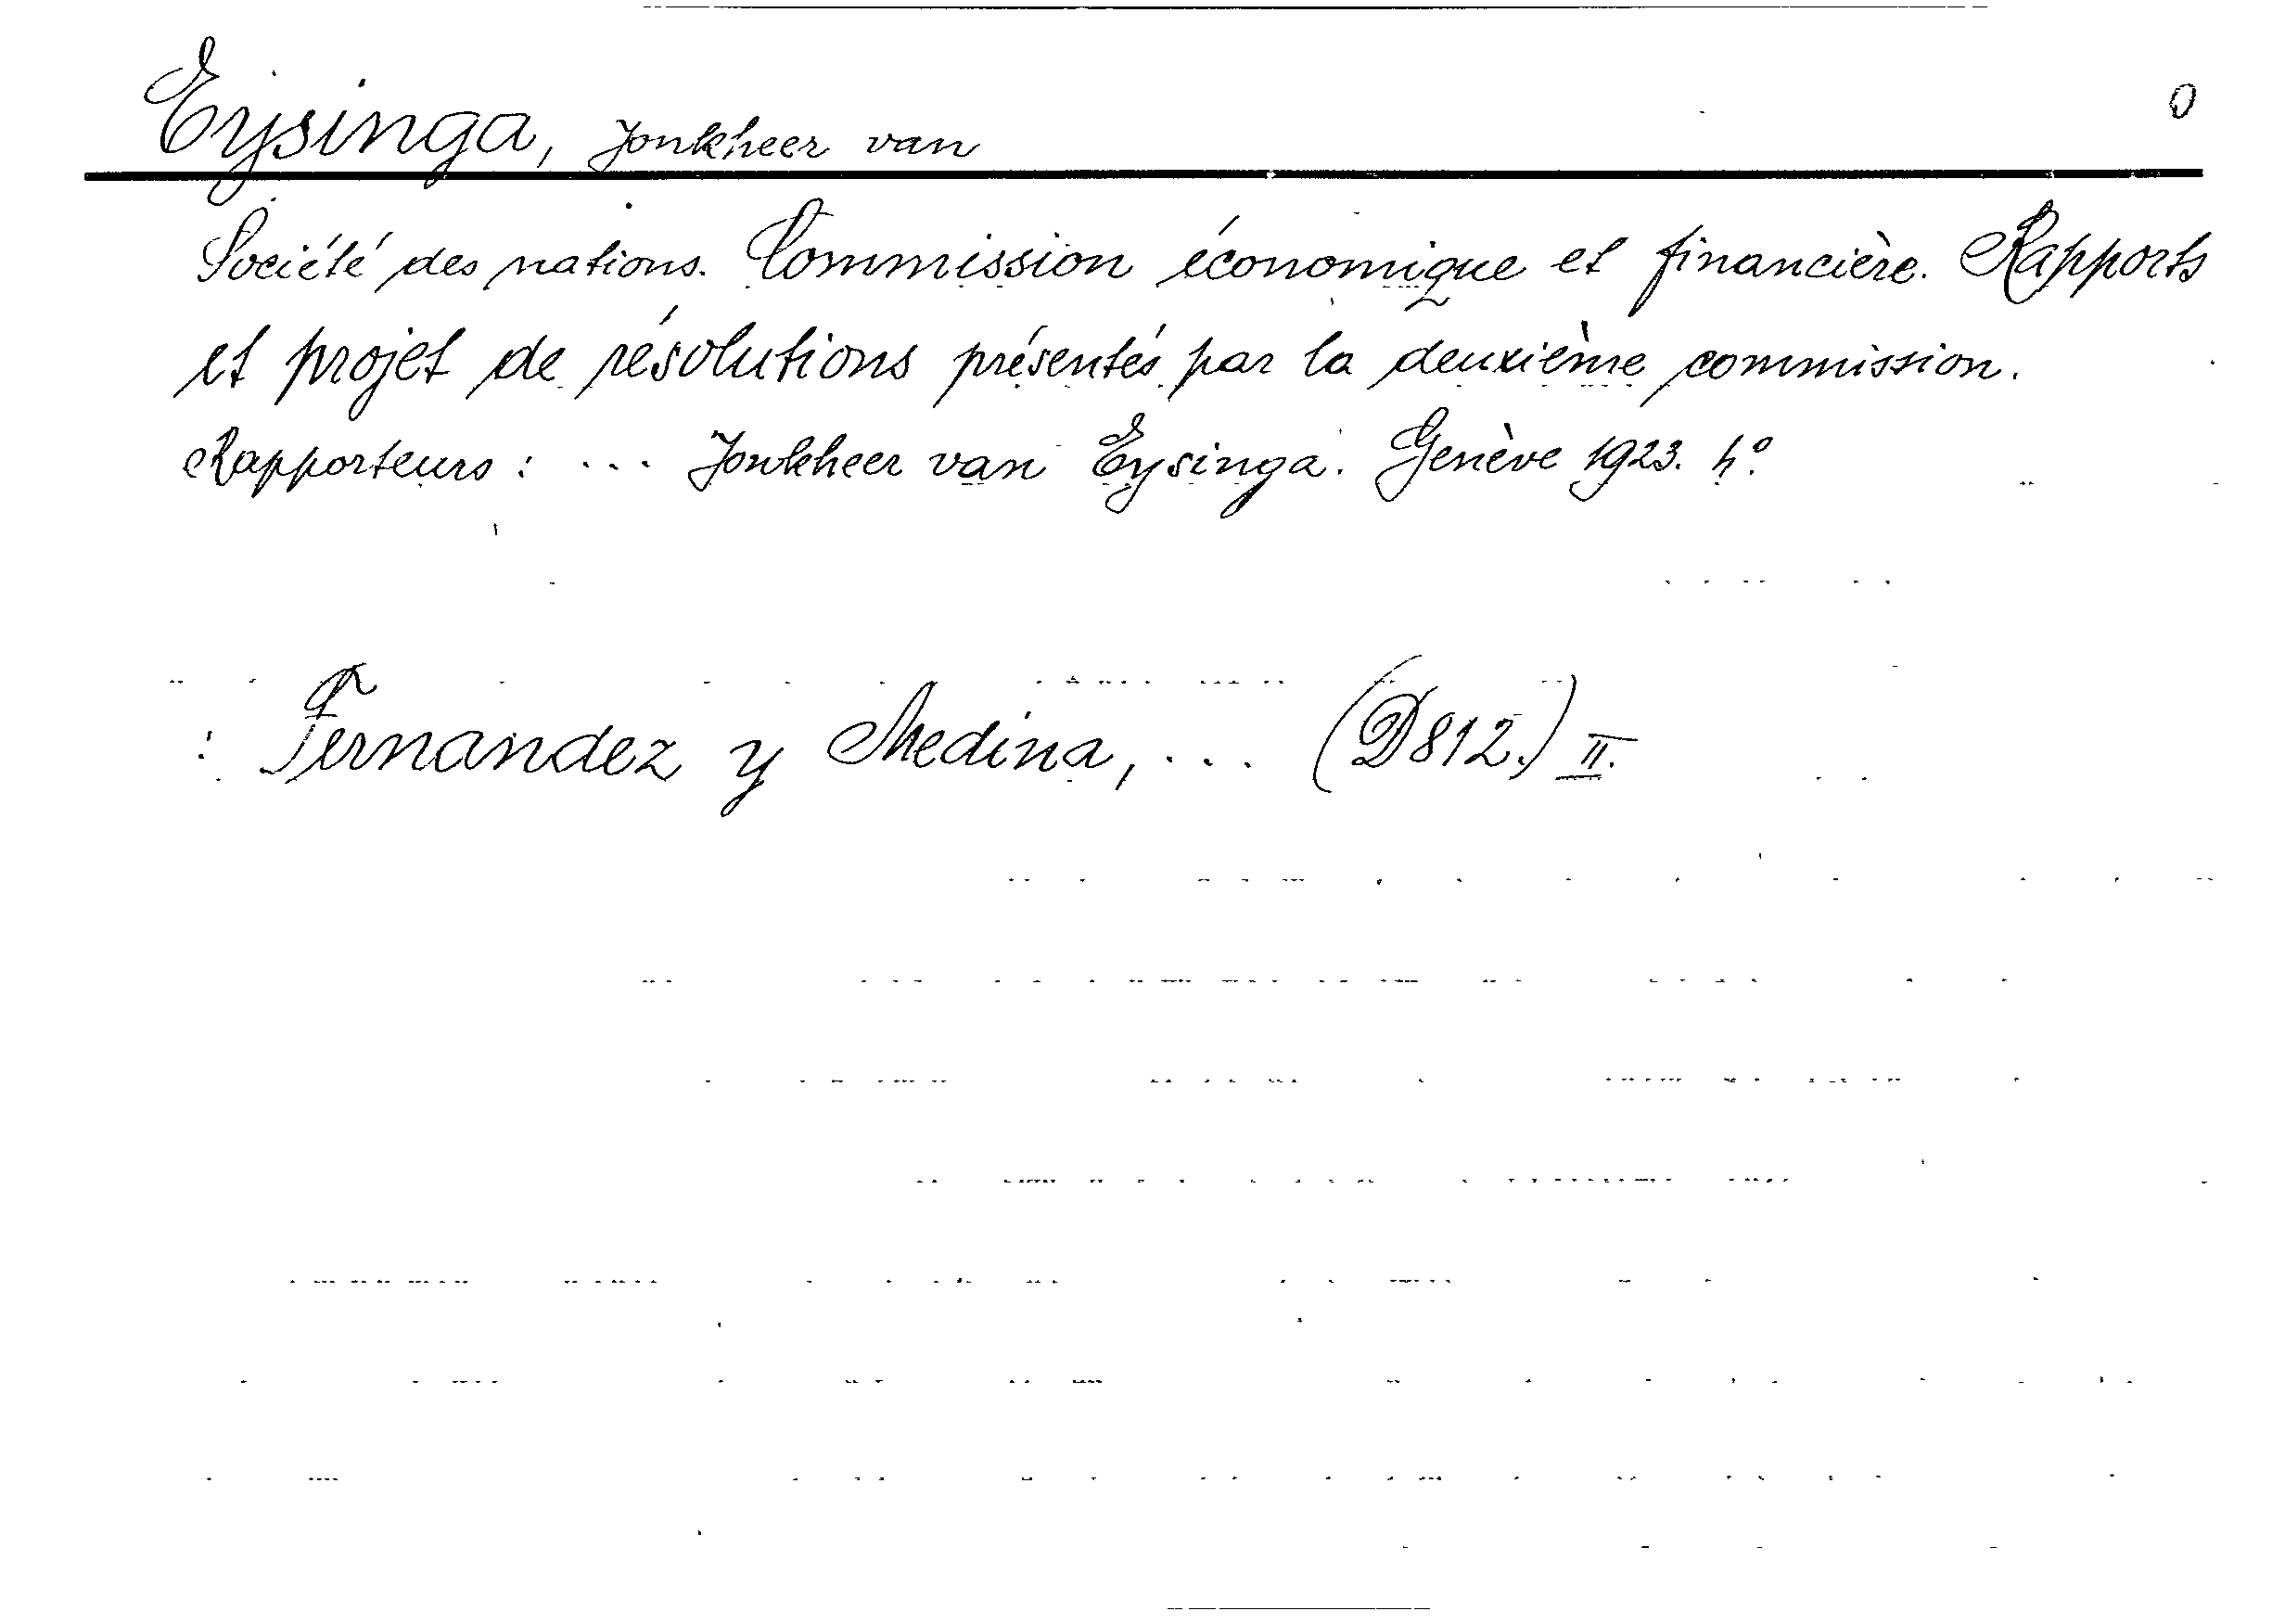 Eysinga, Jonkheer van 0
Société des nations. Commission économique et financière. Rapports
et projet de résolutions présentés par la deuxième commission.
Rapporteurs: ... Jonkheer van Eysinga. Genève 1923. 4º
: Fernandez y Medina, ... (D812.) II.